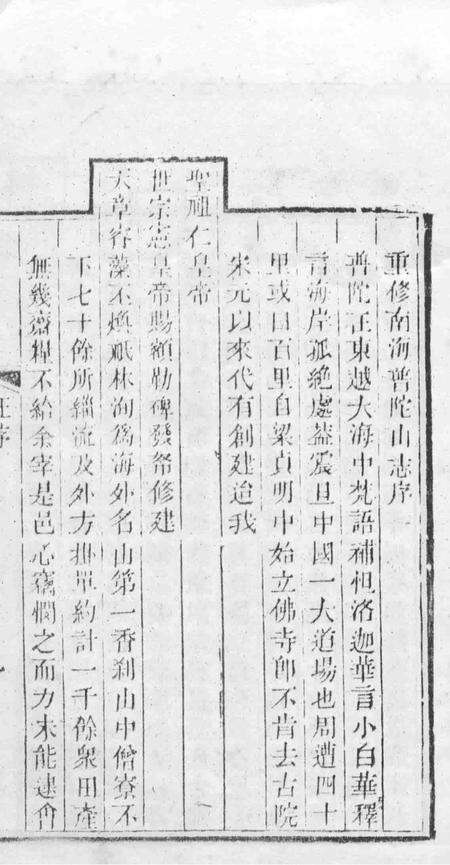 重修南海普陀山志序
普陀在東越大海中梵語補怛洛迦華言小白華釋
言海岸孤絶處葢震旦中國一大道場也周遭四十
里或曰百里自梁貞明中始立佛寺卽不肯去古院
宋元以來代有創建迨我
聖祖仁皇帝
世宗憲皇帝賜額勒碑發帑修建
天章睿藻不煥祇林洵爲海外名山第一香刹山中僧寮不
下七十餘所緇流及外方掛單約計一千餘衆田產
無幾齋糧不給余宰是邑心竊憫之而力未能逮會
序